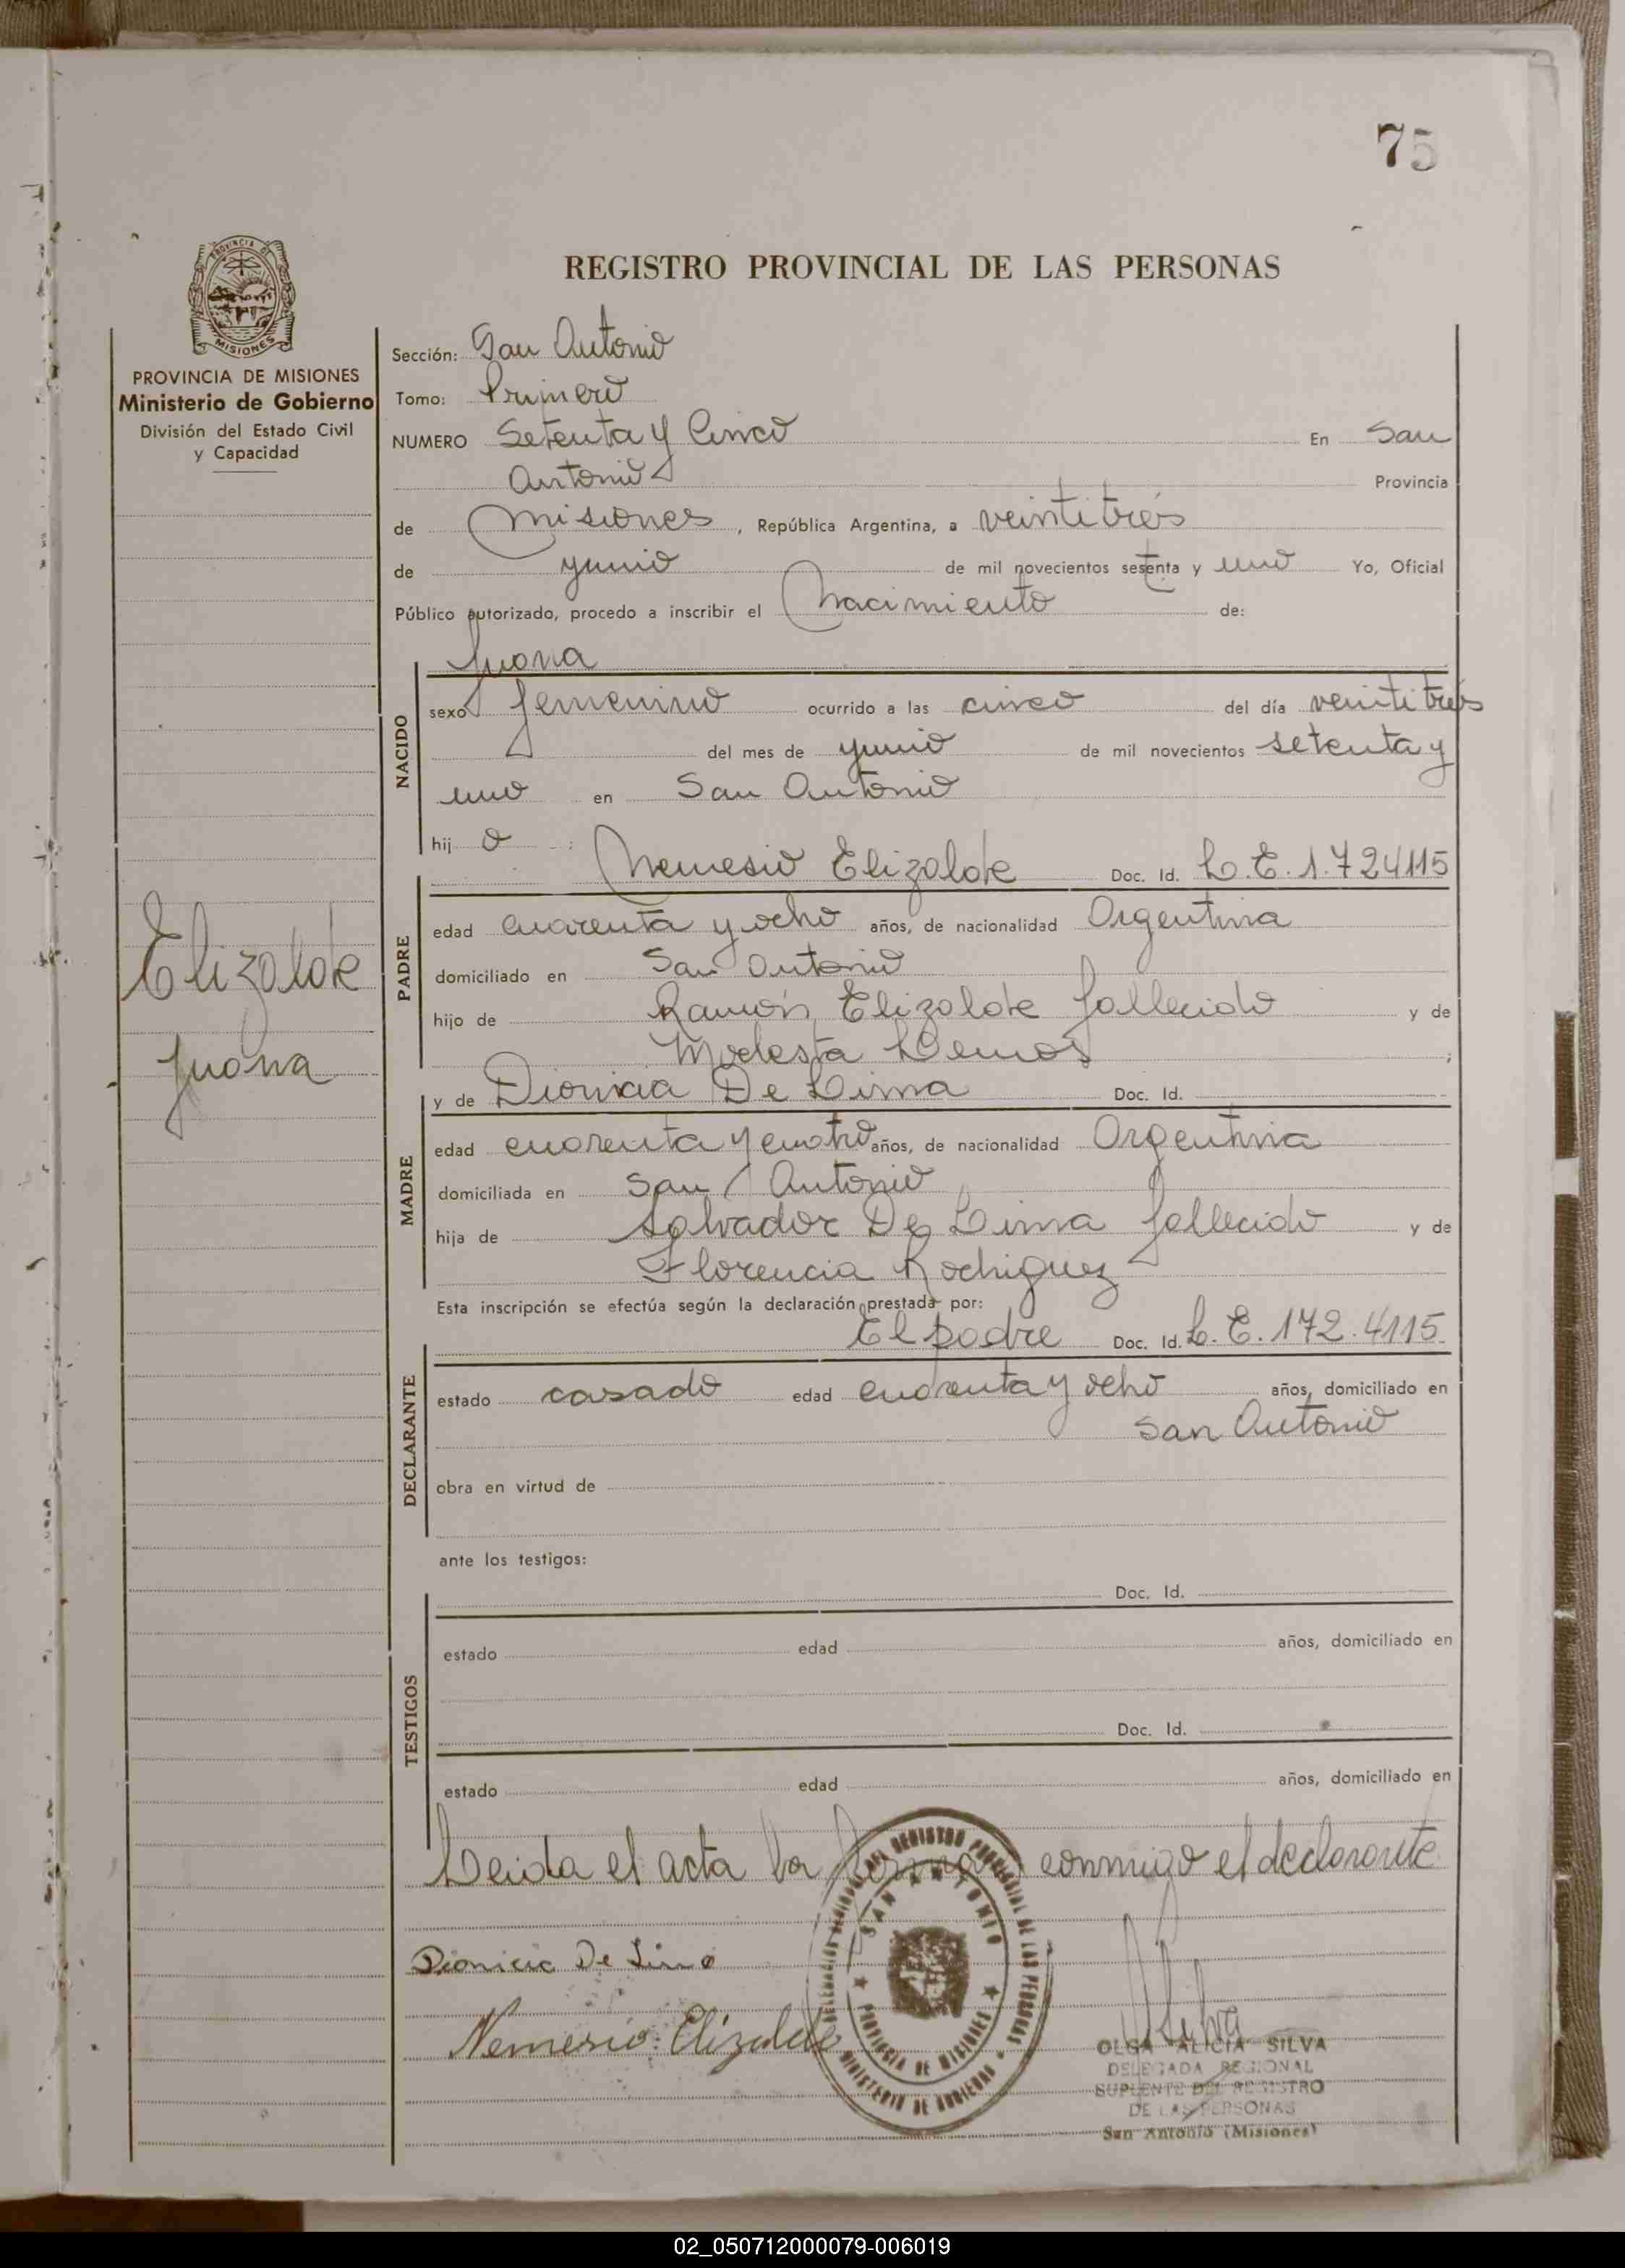 75
PROVINCIA DE
MISIONES
PROVINCIA DE MISIONES
Ministerio de Gobierno
División del Estado Civil
y Capacidad
REGISTRO PROVINCIAL DE LAS PERSONAS
Sección: San Antonio
Tomo: Primero
NUMERO Setenta y Cinco En San
Antonio Provincia
de Misiones, República Argentina, a veintitrés
de junio de mil novecientos setenta y uno Yo, Oficial
Público autorizado, procedo a inscribir el Nacimiento de:
Juana
NACIDO
sexo femenino ocurrido a las cinco del día veintitrés
del mes de junio de mil novecientos setenta y
uno en San Antonio
hij o :
Nemesio Elizalde Doc. Id. L.E. 1.724115
PADRE
edad cuarenta y ocho años, de nacionalidad Argentina
domiciliado en San Antonio
hijo de Ramón Elizalde fallecido y de
Modesta Lemos ;
y de Dionicia De Lima Doc. Id.
MADRE
edad cuarenta y cuatro años, de nacionalidad Argentina
domiciliada en San Antonio
hija de Salvador De Lima fallecido y de
Florencia Rodriguez
Esta inscripción se efectúa según la declaración prestada por:
El padre Doc. Id. L.E. 172.4115
DECLARANTE
estado casado edad cuarenta y ocho años, domiciliado en
San Antonio
obra en virtud de
ante los testigos:
Doc. Id.
TESTIGOS
estado edad años, domiciliado en
Doc. Id.
estado edad años, domiciliado en
Leida el acta la firma conmigo el declarante
Elizalde
Juana
Dionicia De Lima
Nemesio Elizalde
SAN ANTONIO
PROVINCIA DE MISIONES
MINISTERIO DE GOBIERNO
Silva
OLGA ALICIA SILVA
DELEGADA REGIONAL
SUPLENTE DEL REGISTRO
DE LAS PERSONAS
San Antonio (Misiones)
02_050712000079-006019